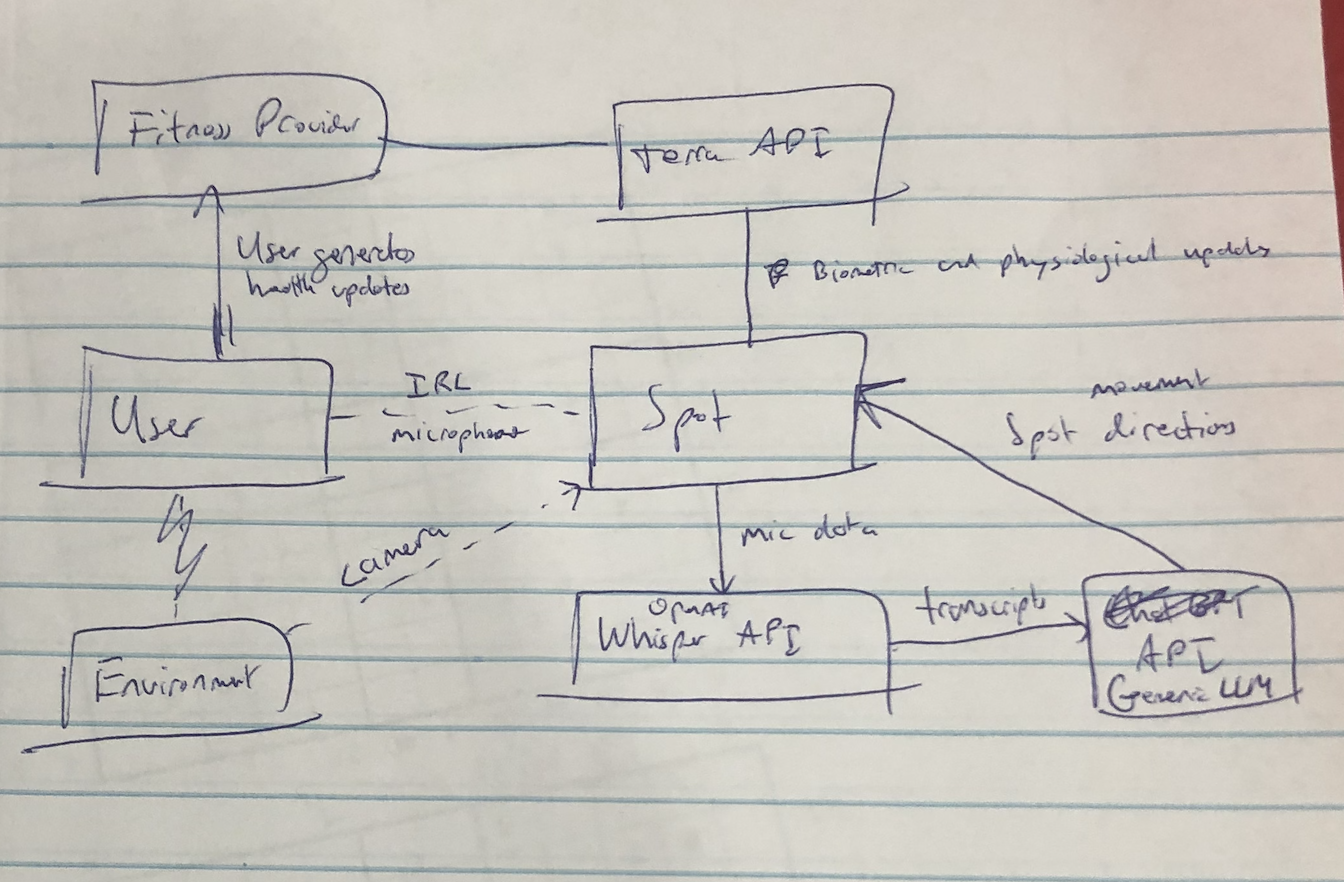 Fitness Provider
Terra API
User generates
health updates
Biometric and physiological updates
User
IRL
microphone
Spot
movement
Spot directions
camera
mic data
OpenAI
Whisper API
transcripts
API
Generic LLM
Environment